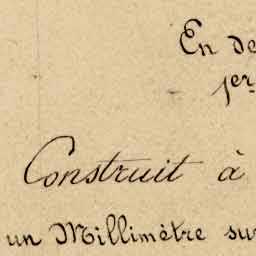 En de
1er
Construit à
un Millimètre sur